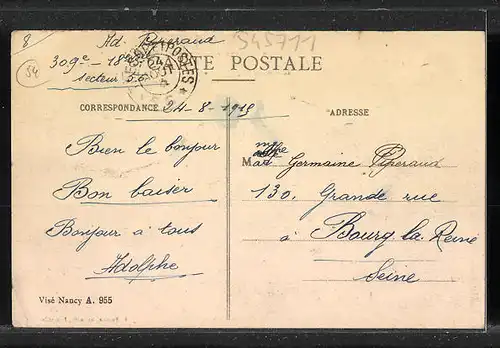 8 Ad. Piperaud 545711
309e - 18e
secteur 56
54
CARTE POSTALE
POSTES
CORRESPONDANCE 24-8-1915
ADRESSE
Bien le bonjour
Bon baiser
Bonjour à tous
Adolphe
Visé Nancy A. 955
Germaine Piperaud
130. Grande rue
à Bourg la Reine
Seine